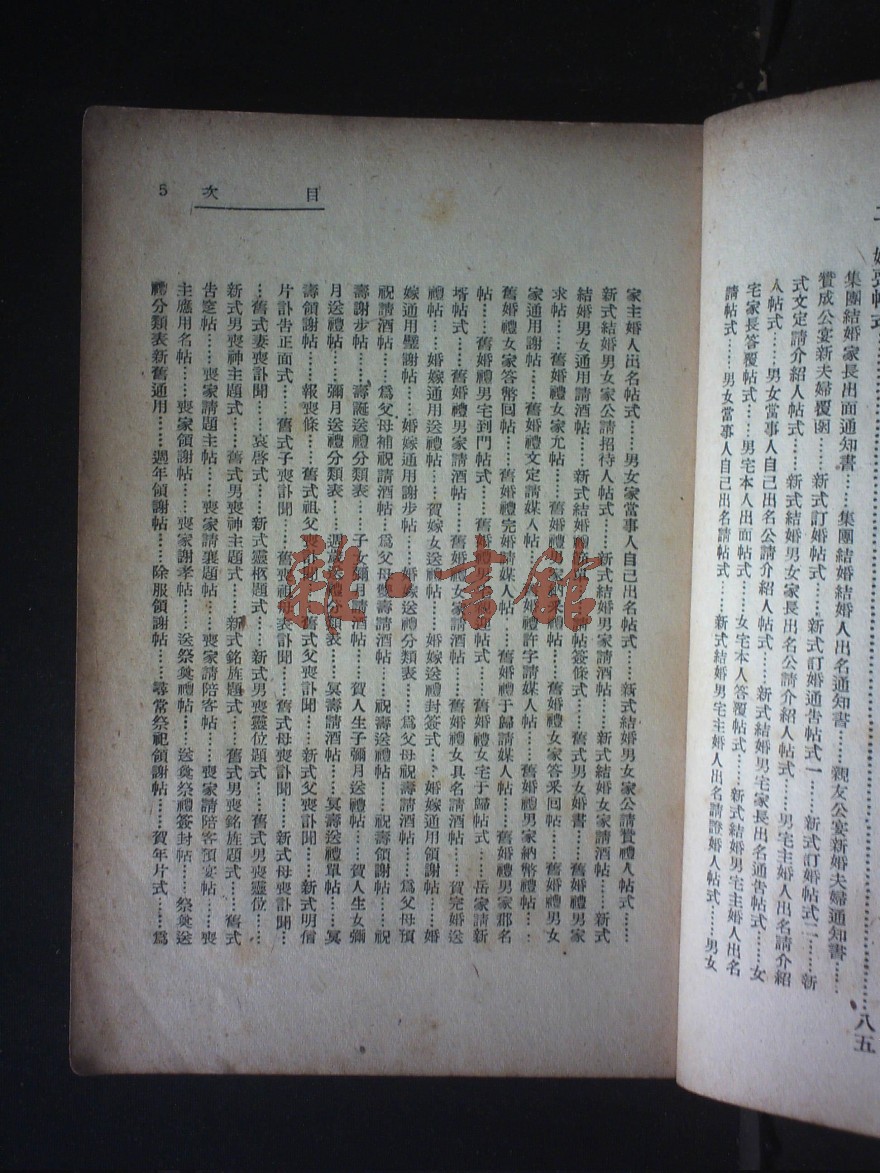 婚喪帖式
八五
集團結婚家長出面通知書……集團結婚結婚人出名通知書……親友公宴新婚夫婦通知書……
贊成公宴新夫婦覆函……新式訂婚帖式……新式訂婚通告帖式一……新式訂婚帖式二……新
式文定請介紹人帖式……新式結婚男女家長出名公請介紹人帖式……男宅主婚人出名請介紹
人帖式……男女當事人自己出名公請介紹人帖式……新式結婚男宅家長出名通告帖式……女
宅家長答覆帖式……男宅本人出面帖式……女宅本人答覆帖式……新式結婚男宅主婚人出名
請帖式……男女當事人自己出名請帖式……新式結婚男宅主婚人出名請證婚人帖式……男女
目次
5
家主婚人出名帖式……男女家當事人自己出名帖式……新式結婚男女家公請贊禮人帖式……
新式結婚男女家公請招待人帖式……新式結婚男家請酒帖……新式結婚女家請酒帖……新式
結婚男女通用請酒帖……新式結婚禮帖簽條式……舊式男女婚書……舊婚禮男家
求帖……舊婚禮女家允帖……舊婚禮男家納采禮帖……舊婚禮女家答采回帖……舊婚禮男女
家通用謝帖……舊婚禮文定請媒人帖……舊婚禮許字請媒人帖……舊婚禮男家納幣禮帖……
舊婚禮女家答幣回帖……舊婚禮完婚請媒人帖……舊婚禮于歸請媒人帖……舊婚禮男家郡名
帖……舊婚禮男宅到門帖式……舊婚禮男宅親迎帖式……舊婚禮女宅于歸帖式……岳家請新
壻帖式……舊婚禮男家請酒帖……舊婚禮女家請酒帖……舊婚禮女具名請酒帖……賀完婚送
禮帖……婚嫁通用送禮帖……賀嫁女送禮帖……婚嫁送禮封签式……婚嫁通用領謝帖……婚
嫁通用璧謝帖……婚嫁通用謝步帖……婚嫁送禮分類表……爲父母祝壽請酒帖……爲父母預
祝請酒帖……爲父母補祝請酒帖……爲父母雙壽請酒帖……祝壽送禮帖……祝壽領謝帖……祝
壽謝步帖……壽誕送禮分類表……子女彌月請酒帖……賀人生子彌月送禮帖……賀人生女彌
月送禮帖……彌月送禮分類表……週歲送禮分類表……冥壽請酒帖……冥壽送禮單帖……冥
壽領謝帖……報喪條……舊式祖父喪訃聞……舊式父喪訃聞……新式父喪訃聞……新式明信
片訃告正面式……舊式子喪訃聞……舊喪祖母喪訃聞……舊式母喪訃聞……新式母喪訃聞…
…舊式妻喪訃聞……哀啓式……新式靈柩題式……新式男喪靈位題式……舊式男喪靈位……
新式男喪神主題式……舊式男喪神主題式……新式銘旌題式……舊式男喪銘旌題式……舊式
告窆帖……喪家請題主帖……喪家請襄題帖……喪家請陪客帖……喪家請陪客預宴帖……喪
主應用名帖……喪家領謝帖……喪家謝孝帖……送祭奠禮帖……送奠祭禮簽封帖……祭奠送
禮分類表新舊通用……週年領謝帖……除服領謝帖……尋常祭祀領謝帖……賀年片式……爲
雜·言館